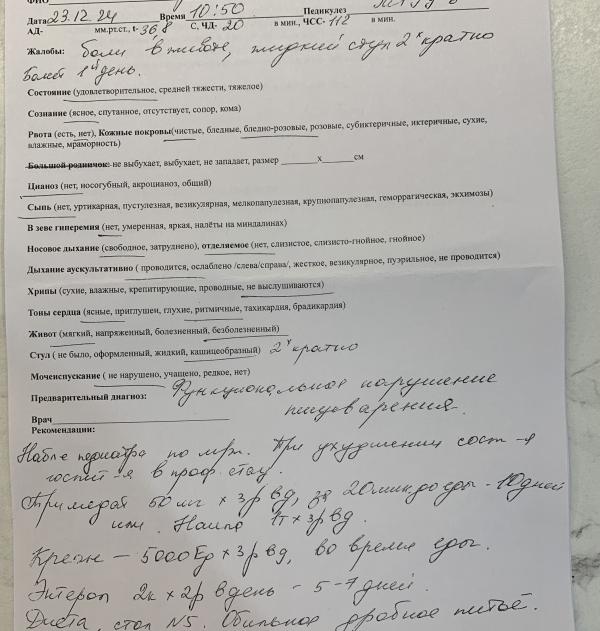 ФИО
Дата 23.12.24 Время 10:50 Педикулез
АД- мм.рт.ст., t- 36,8 С, ЧД- 20 в мин., ЧСС- 112 в мин.
Жалобы: боли в животе, жидкий стул 2х кратно
Болеет 1й день.
Состояние (удовлетворительное, средней тяжести, тяжелое)
Сознание (ясное, спутанное, отсутствует, сопор, кома)
Рвота (есть, нет), Кожные покровы(чистые, бледные, бледно-розовые, розовые, субиктеричные, иктеричные, сухие,
влажные, мраморность)
Большой родничок: не выбухает, выбухает, не западает, размер _______х_______см
Цианоз (нет, носогубный, акроцианоз, общий)
Сыпь (нет, уртикарная, пустулезная, везикулярная, мелкопапулезная, крупнопапулезная, геморрагическая, экхимозы)
В зеве гиперемия (нет, умеренная, яркая, налёты на миндалинах)
Носовое дыхание (свободное, затруднено), отделяемое (нет, слизистое, слизисто-гнойное, гнойное)
Дыхание аускультативно ( проводится, ослаблено /слева/справа/, жесткое, везикулярное, пуэрильное, не проводится)
Хрипы (сухие, влажные, крепитирующие, проводные, не выслушиваются)
Тоны сердца (ясные, приглушен, глухие, ритмичные, тахикардия, брадикардия)
Живот (мягкий, напряженный, болезненный, безболезненный)
Стул ( не было, оформленный, жидкий, кашицеобразный) 2х кратно
Мочеиспускание ( не нарушено, учащено, редкое, нет)
Предварительный диагноз: Функциональное нарушение
пищеварения.
Врач
Рекомендации:
Набл-е педиатра по м/ж. При ухудшении сост-я
госпит-я в проф. стац.
Тримедат 50 мг х 3р вд, за 20 мин до еды - 10 дней
или
Креон – 5000 Ед х 3р вд, во время еды.
Энтерол 2к х 2р в день - 5-7 дней.
Диета, стол N5. Обильное дробное питьё.